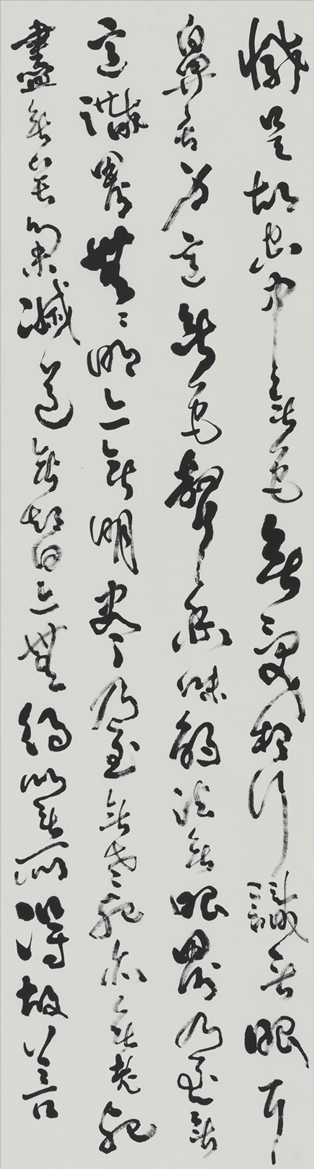 減是故空中無色無受想行識無眼耳
鼻舌身意無色聲香味觸法無眼界乃至無
意識界無〻明亦無明盡乃至無老死亦無老死
盡無苦集滅道無智亦無得以無所得故菩